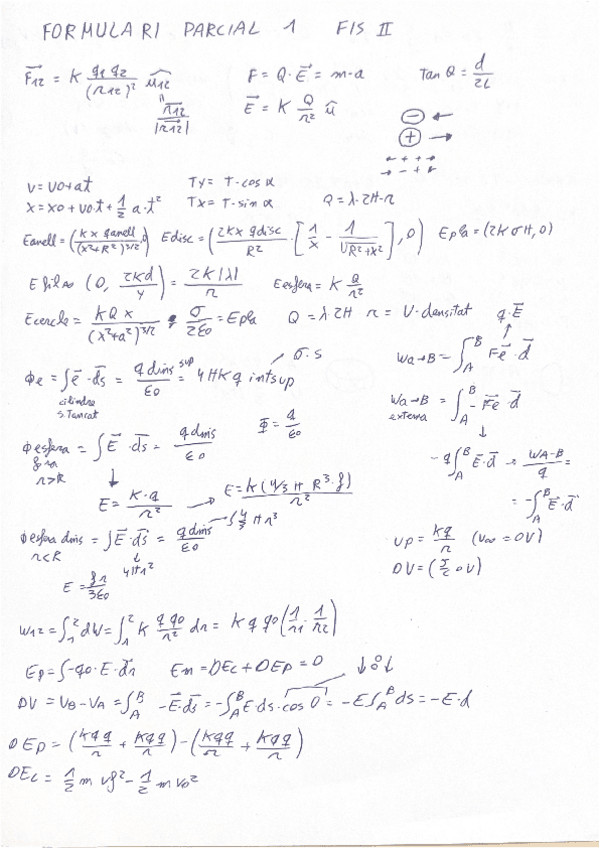 FORMULARI PARCIAL 1 FIS II
F12 = K q1 q2 / (r12)² u12
r12 / |r12|
F = Q · E = m · a
Tan Q = d / 2L
E = K Q / r² û
V = V0 + at
x = x0 + v0·t + 1/2 a·t²
Ty = T · cos α
Tx = T · sin α
Q = λ · 2π · r
Eanell = (kx qanell / (x² + R²)^3/2, 0)
Edisc = (2kx qdisc / R² · [1/x - 1/√R²+x²], 0)
Epla = (2KσΠ, 0)
E fil∞ (0, 2kλ / y) = 2k|λ| / r
Eesfera = K Q / r²
Ecercle = KQx / (x² + a²)^3/2
σ / 2ε0 = Epla
Q = λ · 2Π r = V · densitat
q · E
Φe = ∫ e · ds = q dins sup / ε0 = 4Πkq intsup
σ · s
cilindre
s. Tancat
Φ = q / ε0
Wa→B = ∫A B Fe · d
Wa→B = ∫A B - Fe · d
externa
Φ esfera = ∫ E · ds = q dins / ε0
fora
r > R
E = K · q / r²
E = k (4/3 Π R³ · ρ) / r²
- q ∫A B E · d → WA-B / q =
= - ∫A B E · d
Φ esfera dins = ∫ E · ds = q dins / ε0
ρ 4/3 Π r³
r < R
4Πr²
E = ρ r / 3ε0
Up = kq / r (V∞ = 0V)
DV = (J/C o V)
W12 = ∫1 2 dW = ∫1 2 K q q0 / r² dr = K q q0 (1/r1 · 1/r2)
Ep = ∫ - q0 · E · dr
Em = DEc + DEp = 0
DV = VB - VA = ∫A B - E · ds = - ∫A B E ds · cos 0 = - E ∫A B ds = - E · d
DEp = (kqq / r + kqq / r) - (kqq / r + kqq / r)
DEc = 1/2 m vf² - 1/2 m v0²